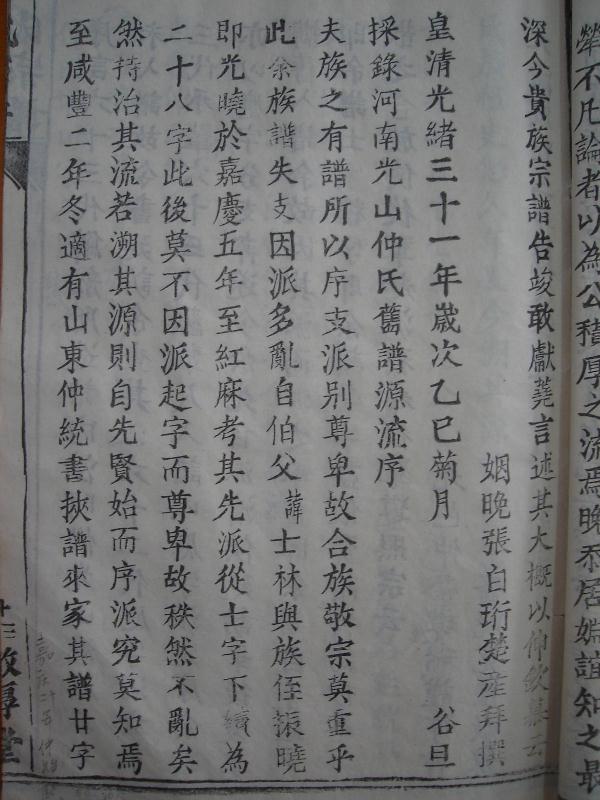 犖不凡論者以為公積厚之流焉晚忝居姻誼知之最
深今貴族宗譜告竣敢獻蕘言述其大概以伸欽慕云
姻晚張白珩楚産拜撰
皇清光緒三十一年歲次乙巳菊月 谷旦
採錄河南光山仲氏舊譜源流序
夫族之有譜所以序支派别尊卑故合族敬宗莫重乎
此余族譜失支因派多亂自伯父諱士林與族侄振曉
即光曉於嘉慶五年至紅麻考其先派從士字下續為
二十八字此後莫不因派起字而尊卑故秩然不亂矣
然持治其流若溯其源則自先賢始而序派究莫知焉
至咸豐二年冬適有山東仲統書挾譜來家其譜廿字
敦厚堂